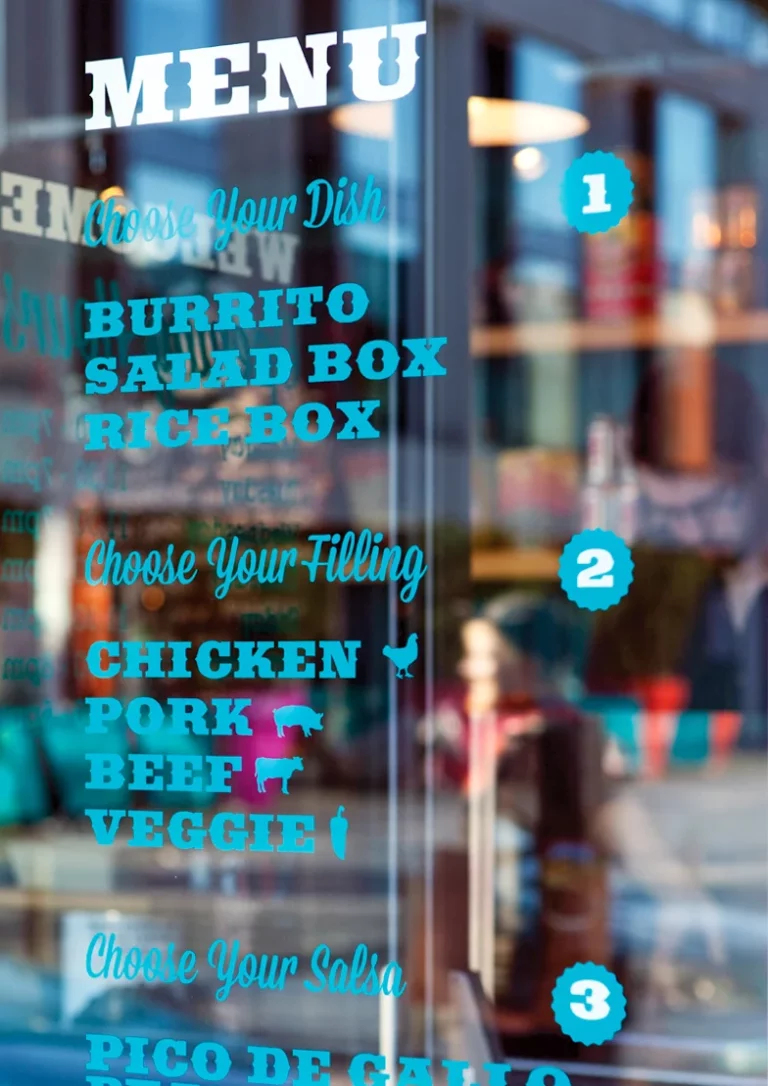 MENU
Choose Your Dish
1
BURRITO
SALAD BOX
RICE BOX
Choose Your Filling
2
CHICKEN
PORK
BEEF
VEGGIE
Choose Your Salsa
3
PICO DE GALLO
WELCOME